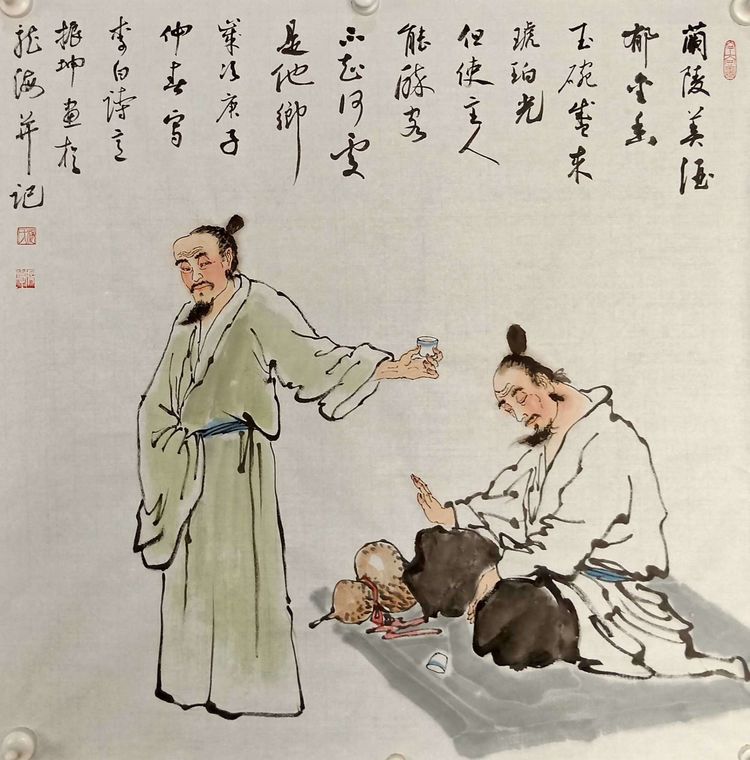 蘭陵美酒
郁金香
玉碗盛来
琥珀光
但使主人
能醉客
不知何處
是他鄉
歲次庚子
仲春寫
李白詩意
振坤畫於
龍海并記